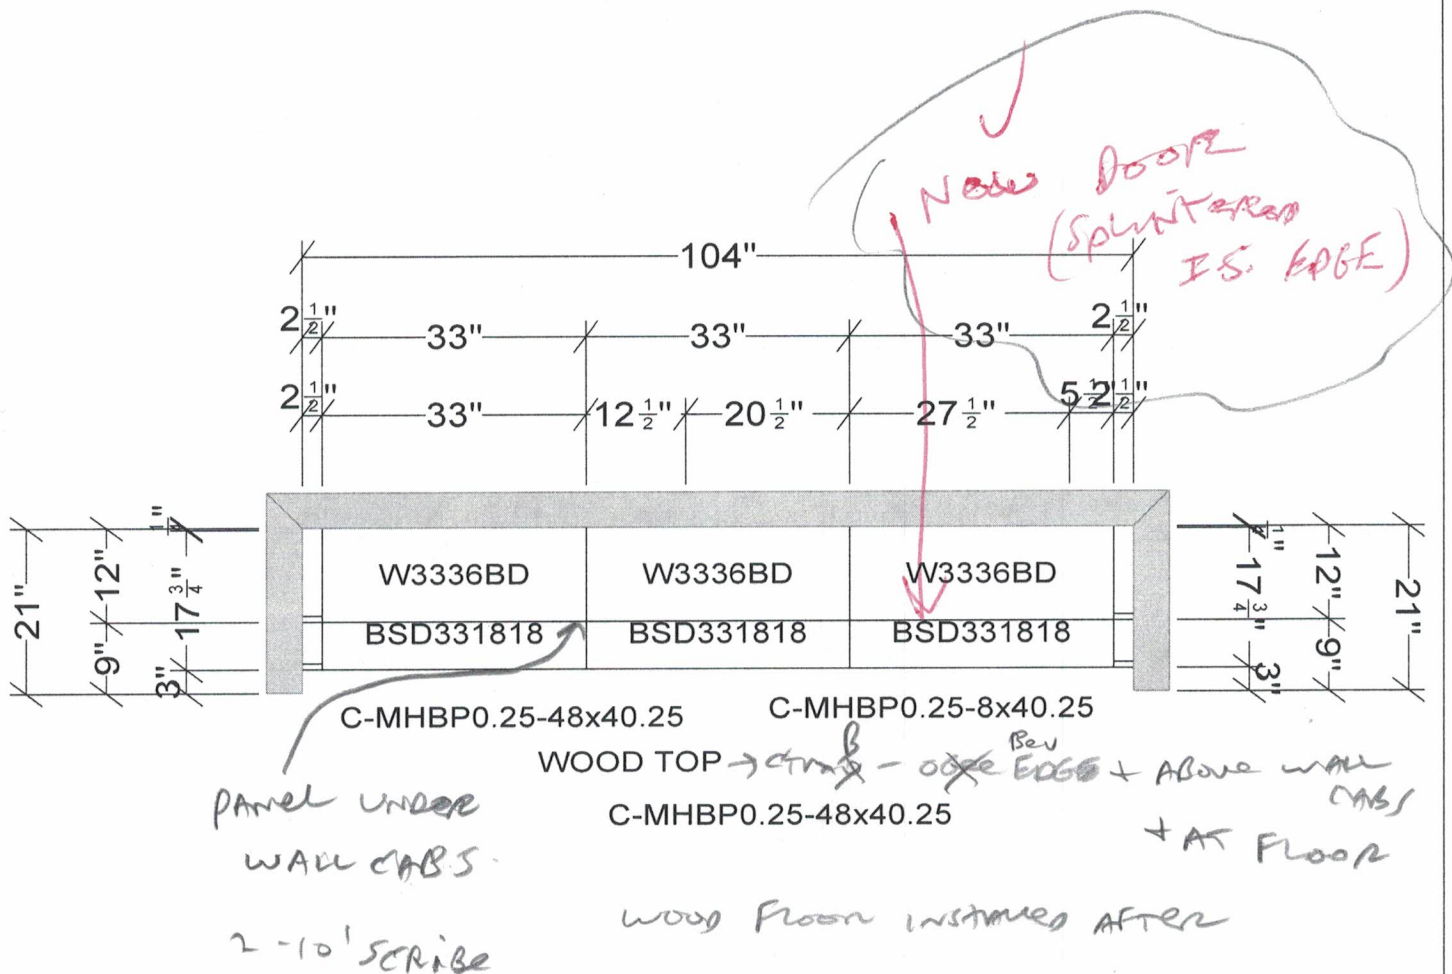 NEW DOOR
(SPLINTERED
IS EDGE)
104"
2 1/2" 33" 33" 33" 2 1/2"
2 1/2" 33" 12 1/2" 20 1/2" 27 1/2" 5 1/2" 2 1/2"
21" 12" 9" 17 3/4" 3"
W3336BD W3336BD W3336BD
BSD331818 BSD331818 BSD331818
17 3/4" 3" 12" 9" 21"
C-MHBP0.25-48x40.25 C-MHBP0.25-8x40.25
WOOD TOP → Bev EDGE + ABOVE WALL
CABS
C-MHBP0.25-48x40.25
+ AT FLOOR
PANEL UNDER
WALL CABS.
WOOD FLOOR INSTALLED AFTER
2-10' SCRIBE